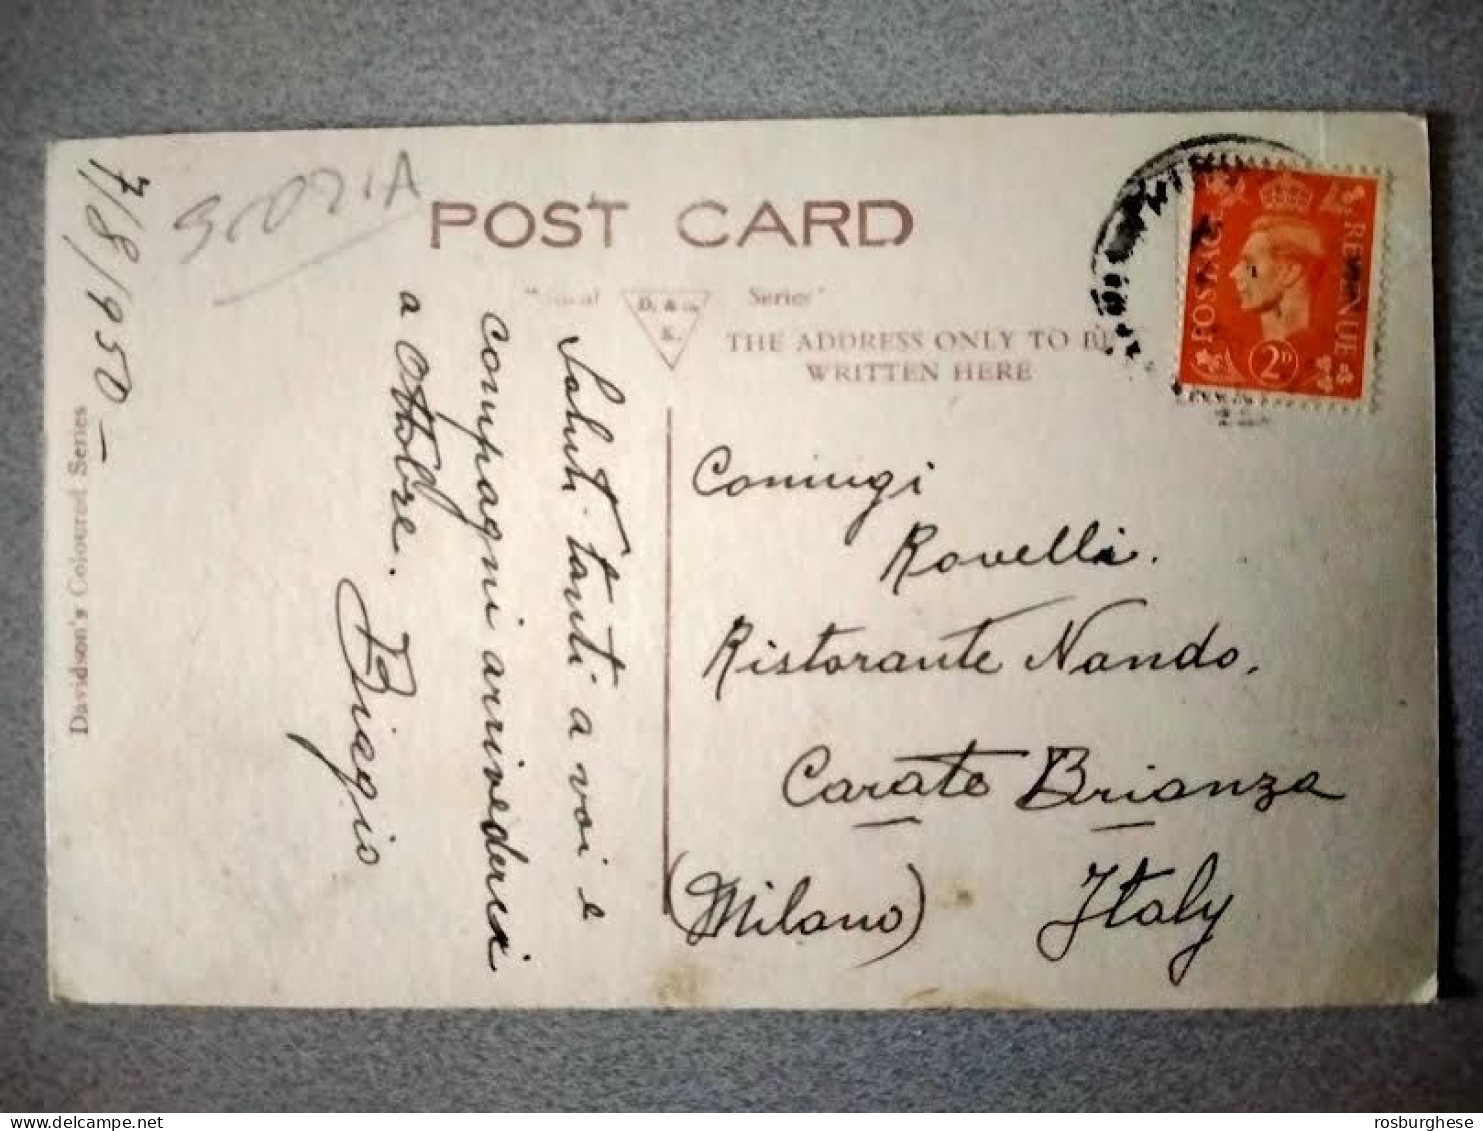 7/8/950-
SCOZIA
POST CARD
D. & S.
K.
Series"
THE ADDRESS ONLY TO BE
WRITTEN HERE
POSTAGE
REVENUE
2D
Saluti tanti a voi e
compagni arrivederci
a Ottobre.
Biagio
Coniugi
Rovelli.
Ristorante Nando,
Carate Brianza
(Milano) Italy
Davidson's Coloured Series
rosburghese